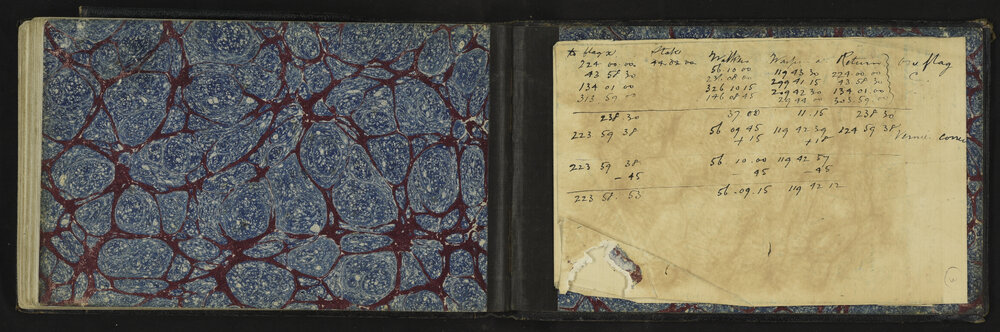 to flag x Stake Watkins Wasp a Return on flag
224 00.00 44.02.00 56.10 00 119 43 30 224.00.00 C
43 58 30 236 08 00 299 41 15 43 58 30
134 01 00 326 10 15 209 42 30 134 01.00
313 59 00 146 08 45 29 44 00 303.59.00
238.30 37 00 11.15 238 30
223 59 38 56 09 45 119 42 39 124 59 38
+ 15 + 18 Vernier Correc
223 59 38 56 10.00 119 42 57
- 45 - 45 - 45
223 58.53 56.09.15 119 42 12